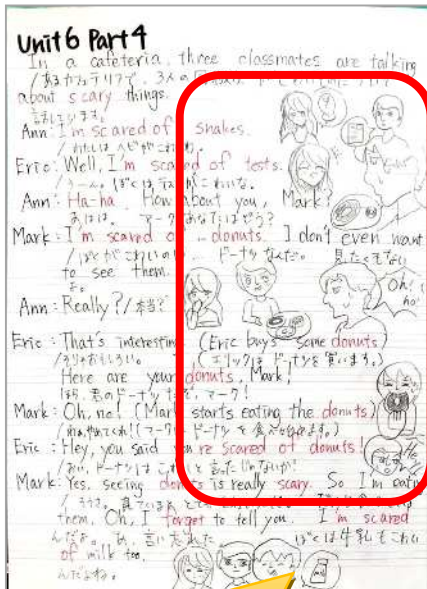 Unit 6 Part 4
In a cafeteria, three classmates are talking
/あるカフェテリアで、3人の
about scary things.
言しています。
Ann: I'm scared of snakes.
/わたしはヘビがこわいわ。
Eric: Well, I'm scared of tests.
/うーん、ぼくはテストがこわいな。
Ann: Ha-ha. How about you, Mark?
/あはは。マーク、あなたはどう?
Mark: I'm scared of ... donuts. I don't even want
/ぼくがこわいのは... ドーナツなんだ。見たくもない
to see them.
よ。
Oh!
ho
Ann: Really? /本当?
Eric: That's interesting. (Eric buys some donuts)
(エリックはドーナツを買います。)
Here are your donuts, Mark!
/ほら、君のドーナツだぞ、マーク!
Mark: Oh, no! (Mark starts eating the donuts)
(マークはドーナツを食べ始めます。)
Eric: Hey, you said you're scared of donuts!
/おい、ドーナツはこわいと言ったじゃないか!
Mark: Yes, seeing donuts is really scary. So I'm eatin
them. Oh, I forget to tell you. I'm scared
んだよ。あ、言い忘れた ぼくは牛乳もこわい
of milk too.
んだよね。